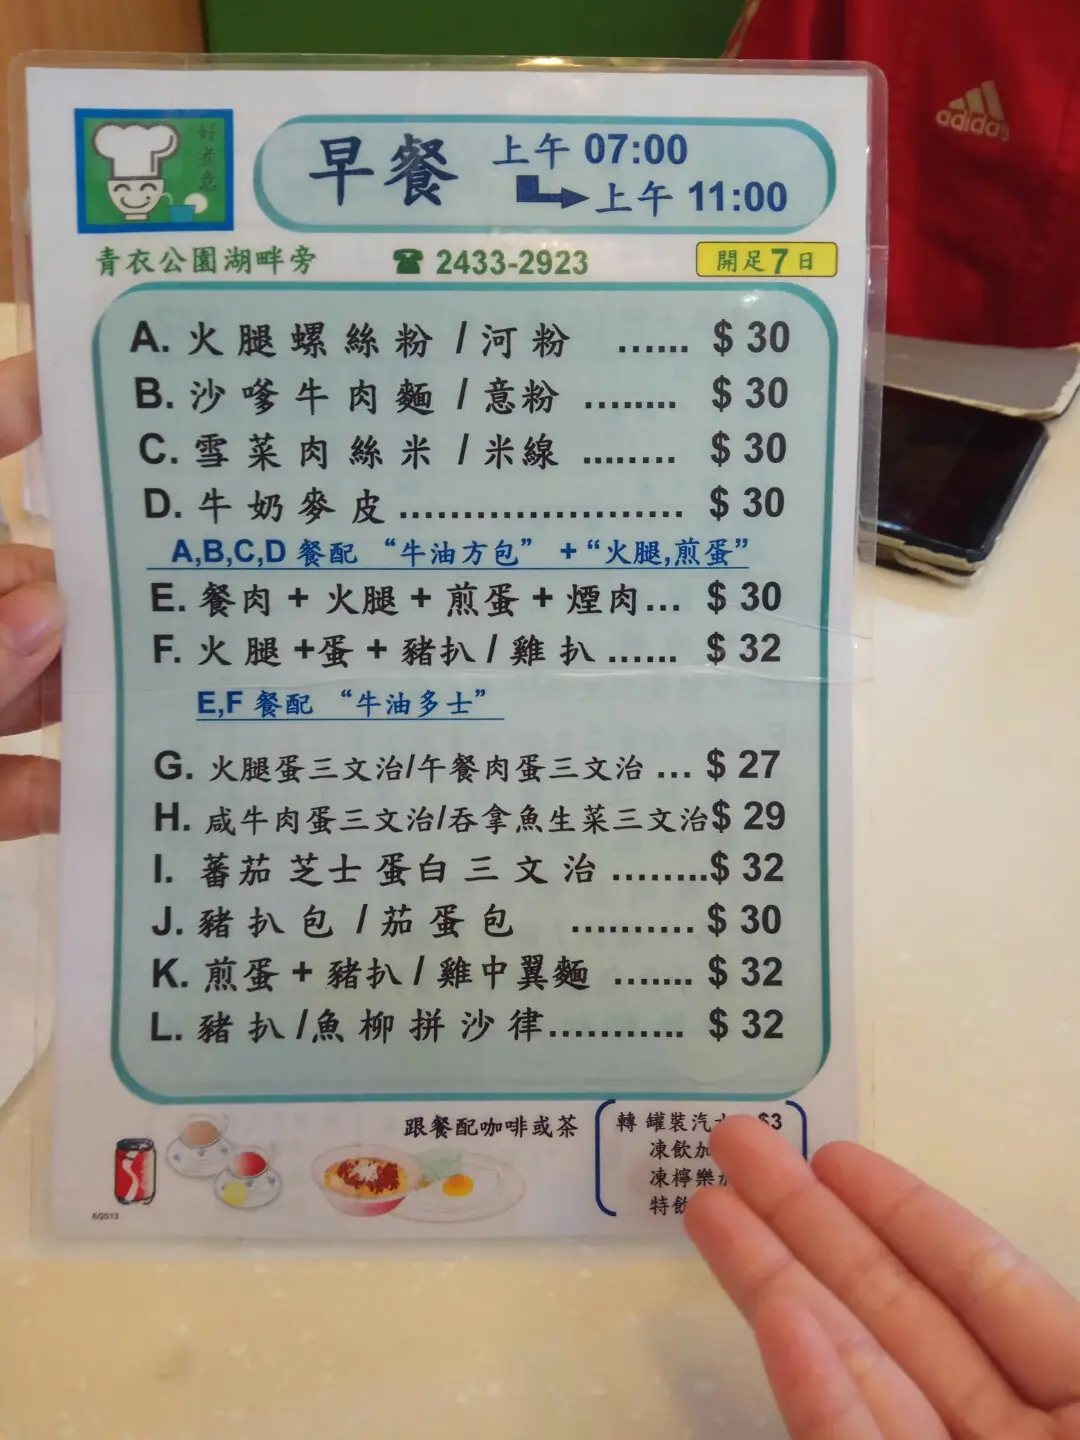 好煮意
早餐 上午 07:00
上午 11:00
adidas
青衣公園湖畔旁 ☎ 2433-2923 開足7日
A. 火腿螺絲粉 / 河粉 ...... $ 30
B. 沙嗲牛肉麵 / 意粉 ........ $ 30
C. 雪菜肉絲米 / 米線 ........ $ 30
D. 牛奶麥皮 ...................... $ 30
A,B,C,D 餐配 “牛油方包” + “火腿,煎蛋”
E. 餐肉 + 火腿 + 煎蛋 + 煙肉... $ 30
F. 火腿 +蛋 + 豬扒 / 雞扒 ...... $ 32
E,F 餐配 “牛油多士”
G. 火腿蛋三文治/午餐肉蛋三文治 ... $ 27
H. 咸牛肉蛋三文治/吞拿魚生菜三文治$ 29
I. 蕃茄芝士蛋白三文治 ........$ 32
J. 豬扒包 / 茄蛋包 .......... $ 30
K. 煎蛋 + 豬扒 / 雞中翼麵 ....... $ 32
L. 豬扒 /魚柳拼沙律........... $ 32
跟餐配咖啡或茶
轉 罐裝汽 $3
凍飲加
凍檸樂
特飲
6/2013